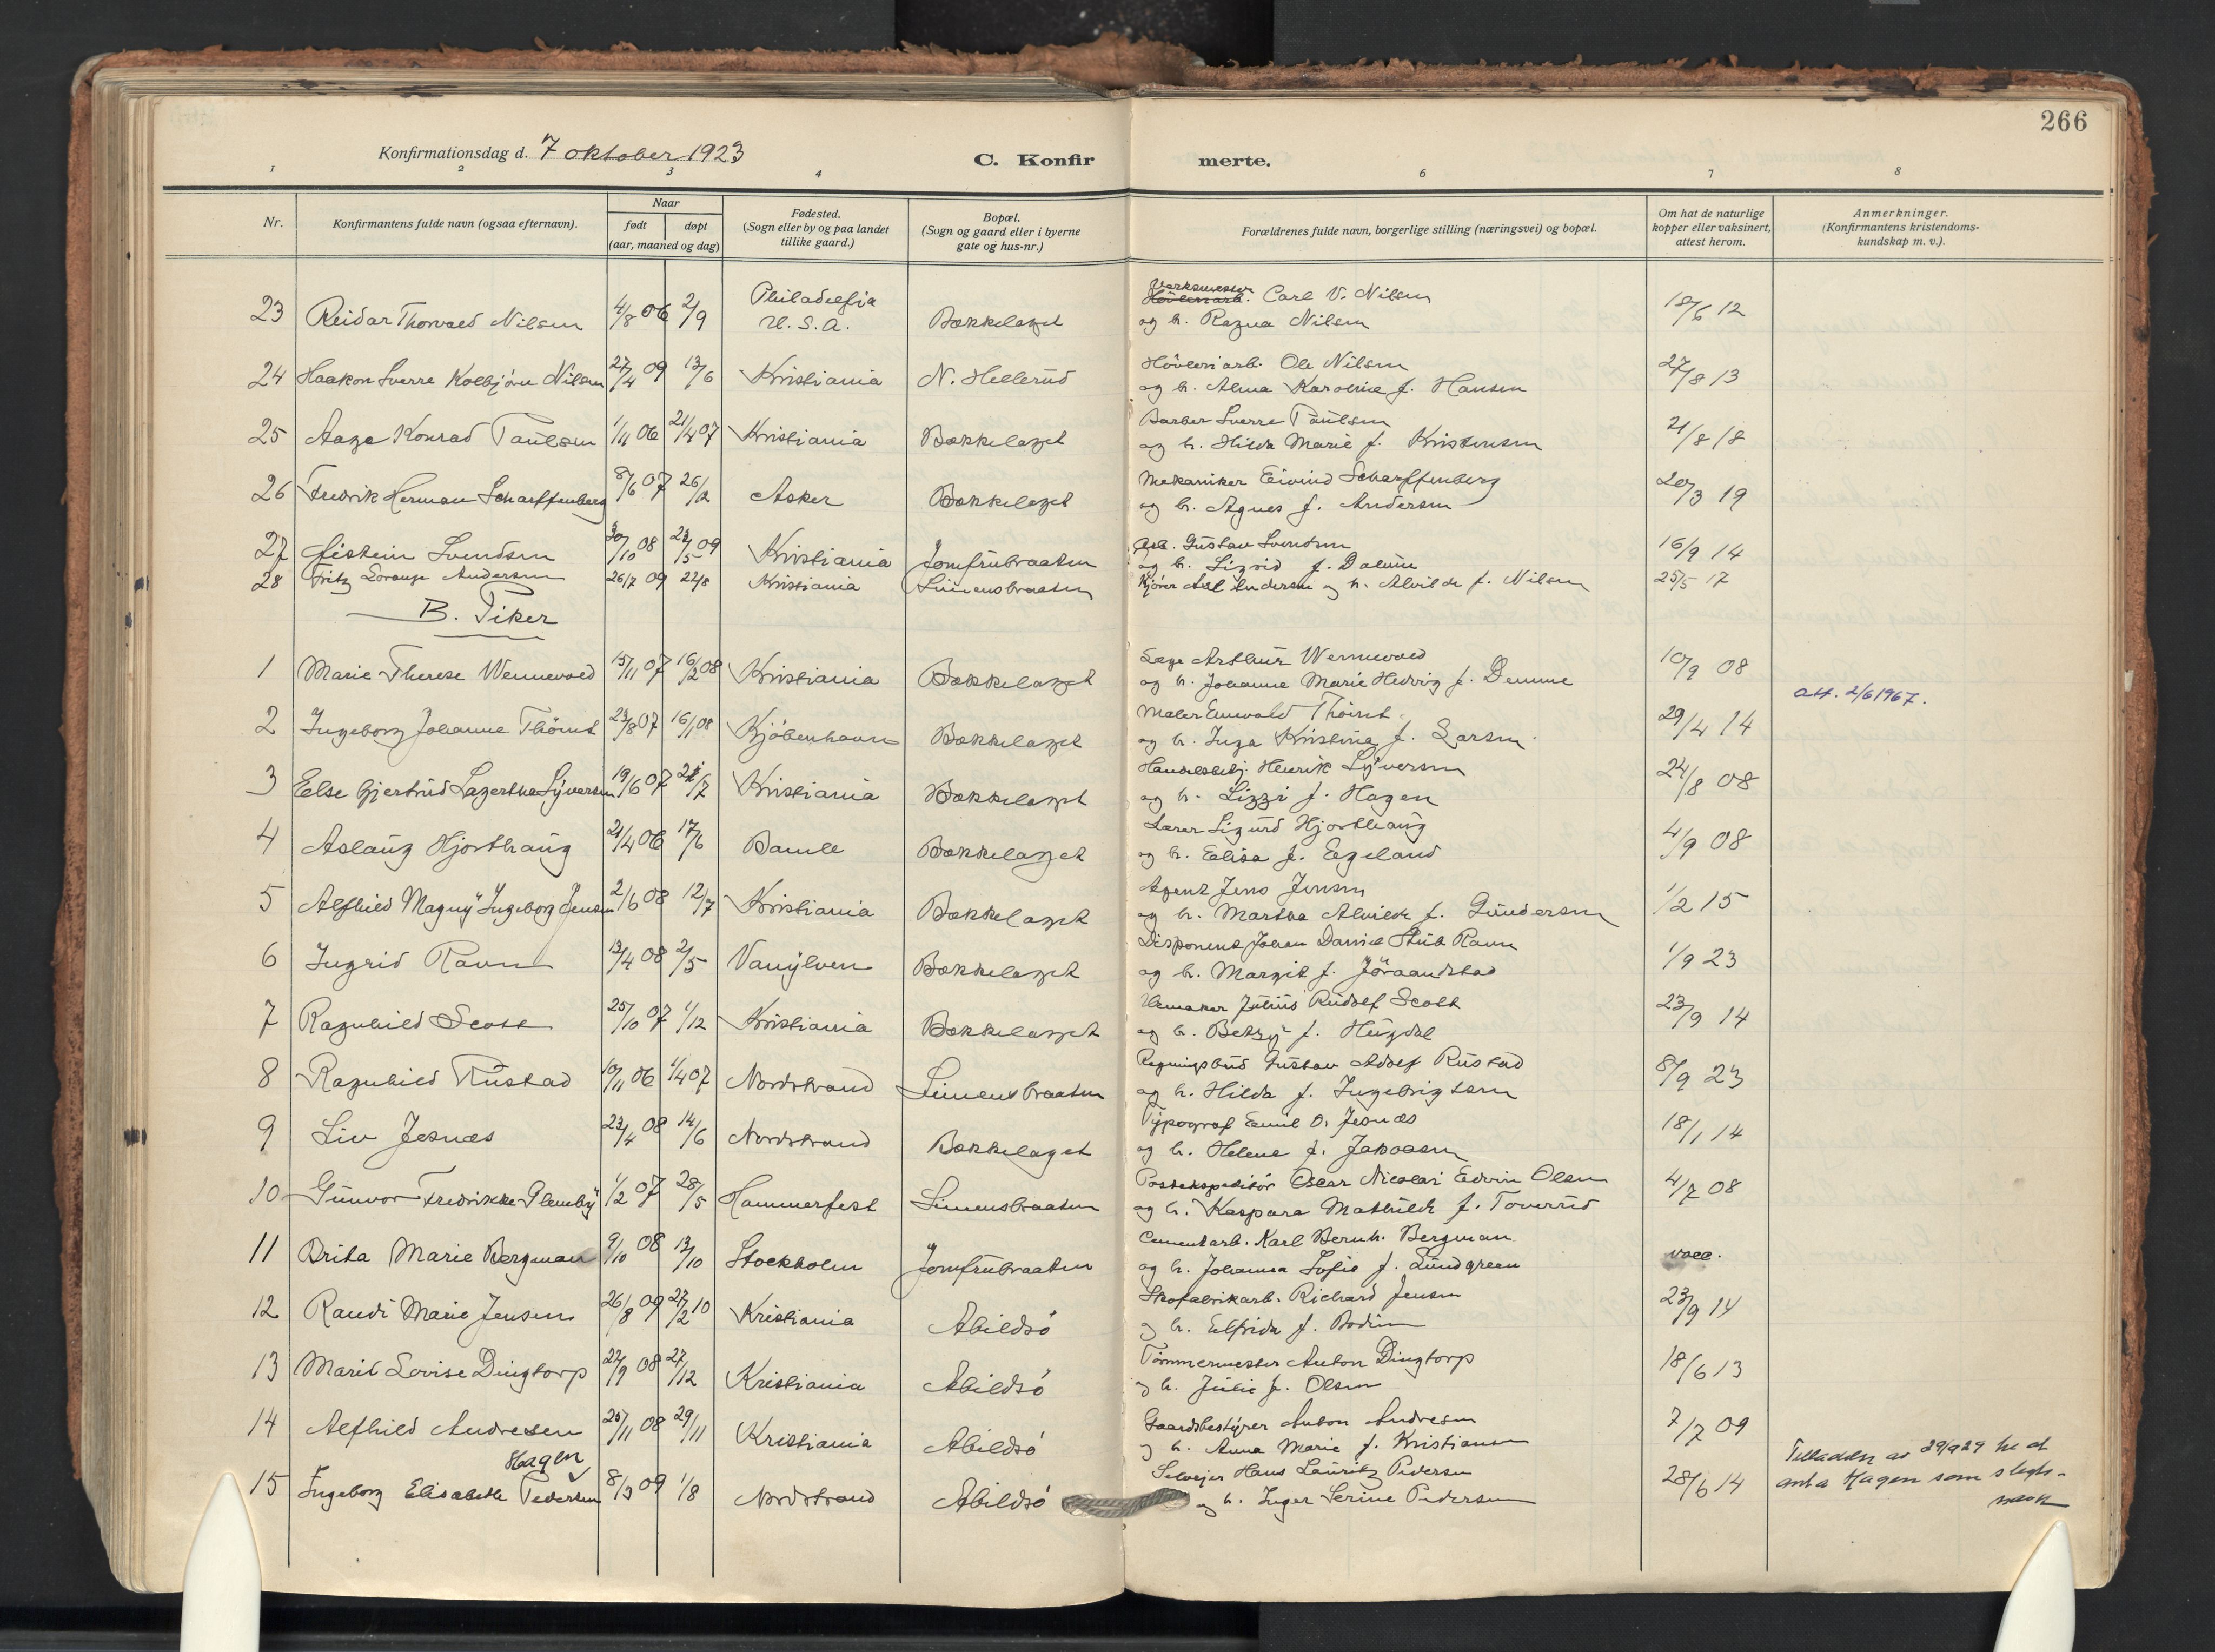 266
Konfirmationsdag d. 7 oktober 1923
C. Konfirmerte.
1 2 3 4 6 7 8
Nr. Konfirmantens fulde navn (ogsaa efternavn). Naar født døpt (aar, maaned og dag) Fødested. (Sogn eller by og paa landet tillike gaard.) Bopæl. (Sogn og gaard eller i byerne gate og hus-nr.) Forældrenes fulde navn, borgerlige stilling (næringsvei) og bopæl. Om hat de naturlige kopper eller vaksinert, attest herom. Anmerkninger. (Konfirmantens kristendomskundskap m. v.).
23 Reidar Thorvald Nilsen 4/8 06 2/9 Philadelfia U.S.A. Bækkelaget Verksmester Høvleriarb. Carl V. Nilsen
og h. Ragna Nilsen 18/6 12
24 Haakon Sverre Kolbjörn Nilsen 27/4 09 13/6 Kristiania N. Hellerud Hövleriarb. Ole Nilsen
og h. Alma Karoline f. Hansen 27/8 13
25 Aage Konrad Paulsen 1/11 06 21/4 07 Kristiania Bækkelaget Barber Sverre Paulsen
og h. Hilda Marie f. Kristensen 21/8 18
26 Fredrik Herman Scharffenberg 8/6 07 26/2 Asker Bækkelaget Mekaniker Eivind Scharffenberg
og h. Agnes f. Andersen 20/3 19
27 Øistein Svendsen 30/10 08 23/5 09 Kristiania Jomfrubraaten Arb. Gustav Svendsen
og h. Sigrid f. Dalum 16/9 14
28 Fritz Lorange Andersen 26/7 09 22/8 Kristiania Simensbraaten Kjörer Axel Andersen og h. Alvilde f. Nilsen 25/5 17
B. Piker
1 Marie Therese Wennevold 15/11 07 16/2 08 Kristiania Bækkelaget Læge Arthur Wennevold
og h. Johanne Marie Hedvig f. Demme 10/9 08
att. 2/6 1967.
2 Ingeborg Johanne Thömt 23/8 07 16/1 08 Kjöbenhavn Bækkelaget Maler Emvald Thömt
og h. Inga Kristina f. Larsen 29/4 14
3 Else Gjertrud Lagertha Syversen 19/6 07 21/7 Kristiania Bækkelaget Handelsbetj. Henrik Syversen
og h. Lizzi f. Hagen 24/8 08
4 Aslaug Hjorthaug 21/4 06 17/6 Bamle Bækkelaget Lærer Sigurd Hjorthaug
og h. Elisa f. Egeland 4/9 08
5 Alfhild Magny Ingeborg Jensen 2/6 08 12/7 Kristiania Bækkelaget Agent Jens Jensen
og h. Martha Alvilde f. Gundersen 1/2 15
6 Ingrid Ravn 13/4 08 2/5 Vanylven Bækkelaget Disponent Johan Daniel Stub Ravn
og h. Margit f. Jöraandstad 1/9 23
7 Ragnhild Scott 25/10 07 1/12 Kristiania Bækkelaget Urmaker Julius Rudolf Scott
og h. Betzy f. Hugdal 23/9 14
8 Ragnhild Rustad 10/11 06 1/4 07 Nordstrand Simensbraaten Regningsbud Gustav Adolf Rustad
og h. Hilda f. Ingebrigtsen 8/9 23
9 Liv Jesnæs 23/4 08 14/6 Nordstrand Bækkelaget Typograf Emil O. Jesnæs
og h. Helene f. Jakobsen 18/1 14
10 Gunvor Fredrikke Glemby 1/2 07 28/5 Hammerfest Simensbraaten Postekspeditör Oscar Nicolai Edvin Olsen
og h. Kaspara Mathilde f. Toverud 4/7 08
11 Brita Marie Bergman 9/10 08 13/10 Stockholm Jomfrubraaten Cementarb. Karl Bernh. Bergman
og h. Johanna Sofie f. Lundgreen vacc.
12 Randi Marie Jensen 26/8 09 27/2 10 Kristiania Abildsö Skofabrikarb. Richard Jensen
og h. Elfrida f. Bodin 23/9 14
13 Marit Lovise Dingtorp 22/9 08 27/12 Kristiania Abildsö Tömmermester Anton Dingtorp
og h. Julie f. Olsen 18/6 13
14 Alfhild Andresen 25/11 08 29/11 Kristiania Abildsö Gaardsbestyrer Anton Andresen
og h. Anna Marie f. Kristiansen 7/7 09
Hagen
15 Ingeborg Elisabeth Pedersen 8/3 09 1/8 Nordstrand Abildsö Selveier Hans Lauritz Pedersen
og h. Inger Serine Pedersen 28/6 14
Tilladelse av 29/9 29 til at
anta Hagen som slegts-
navn